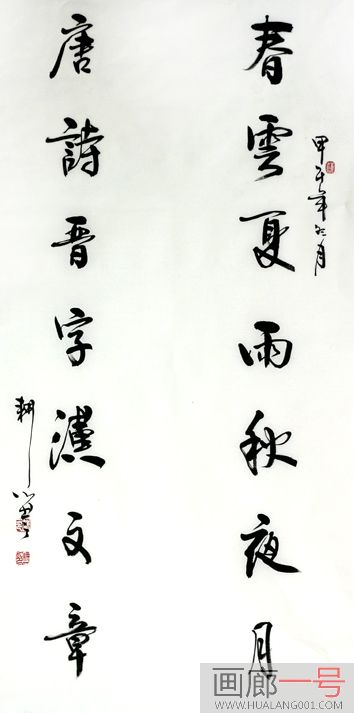 春雲夏雨秋夜月
甲午年
月
唐詩晋字漢文章
耕
画廊一号
WWW.HUALANG001.COM